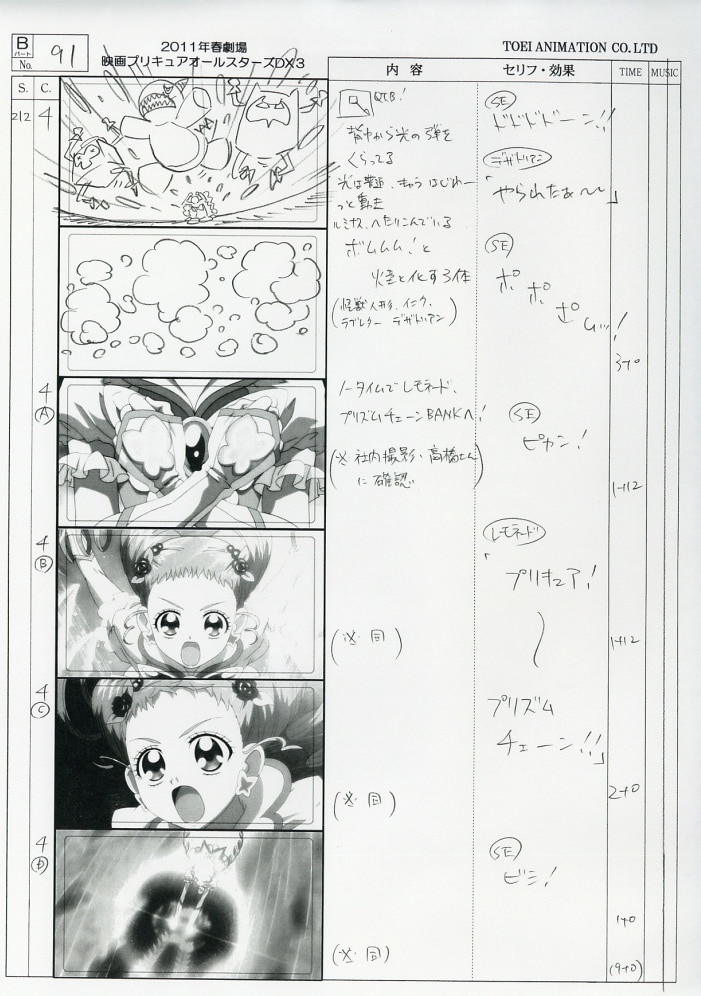 B
パート
No.
91
2011年春劇場
映画プリキュアオールスターズDX3
TOEI ANIMATION CO.LTD
S.
C.
内 容
セリフ・効果
TIME
MUSIC
212
4
QTB!
背中から光の弾を
くらってる
ルミナス、へたりこんでいる
SE
ドドドドーン!!
デザトリアン
「やられたぁ〜〜」
ボムムム!と
煙と化する体
SE
ポ ポ ポ ムッ!
3+0
4
A
ノータイムでレモネード、
プリズムチェーンBANKへ!
(※社内撮影、高橋さん
に確認)
SE
ピカン!
1+12
4
B
(※同)
レモネード
「プリキュア!
1+12
4
C
(※同)
プリズム
チェーン!!」
2+0
4
D
(※同)
SE
ビシ!
1+0
(9+0)